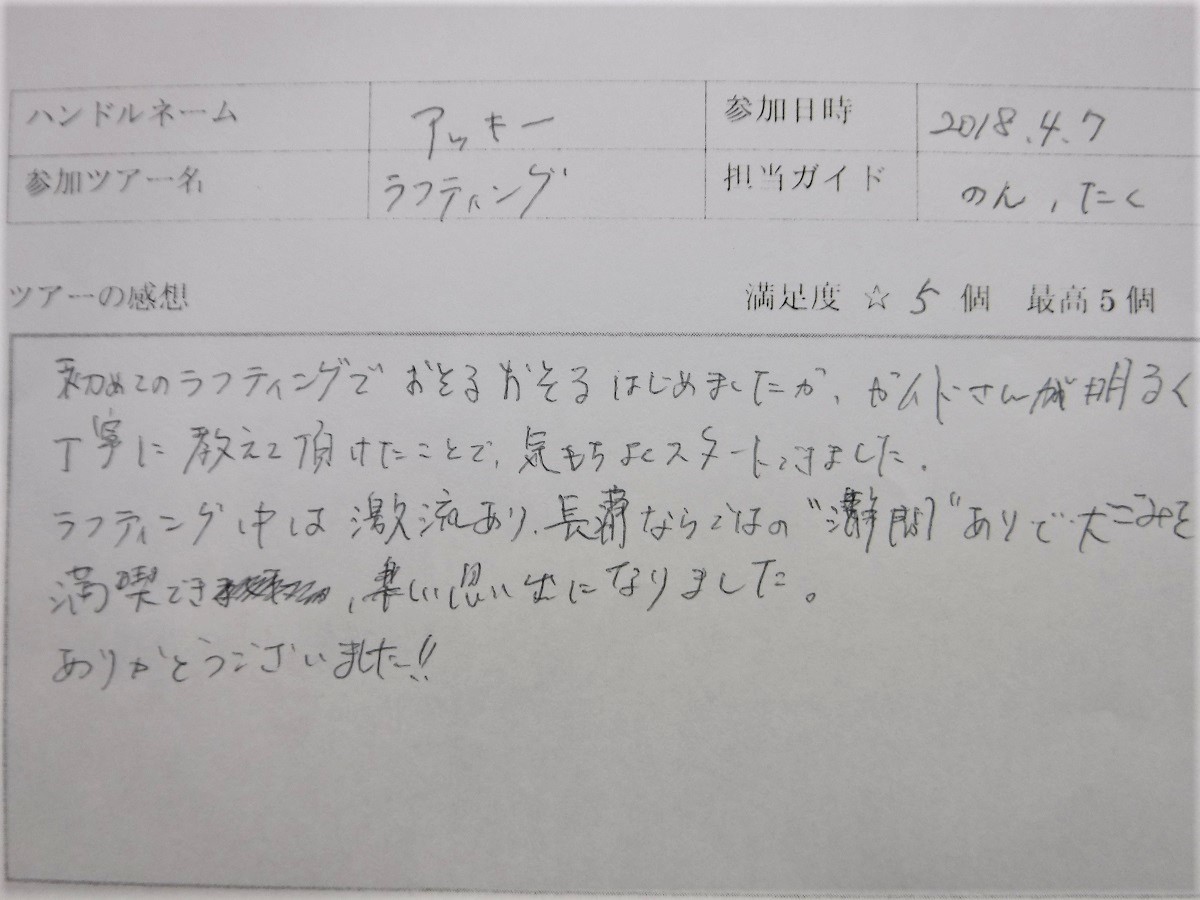 ハンドルネーム アッキー 参加日時 2018.4.7
参加ツアー名 ラフティング 担当ガイド のん,たく
ツアーの感想 満足度 ☆ 5 個 最高5個
初めてのラフティングでおそるおそるはじめましたが、ガイドさんが明るく
丁寧に教えて頂けたことで、気もちよくスタートできました。
ラフティング中は激流あり、長瀞ならではの"瀞" ありで大ごみを
満喫でき、楽しい思い出になりました。
ありがとうございました!!